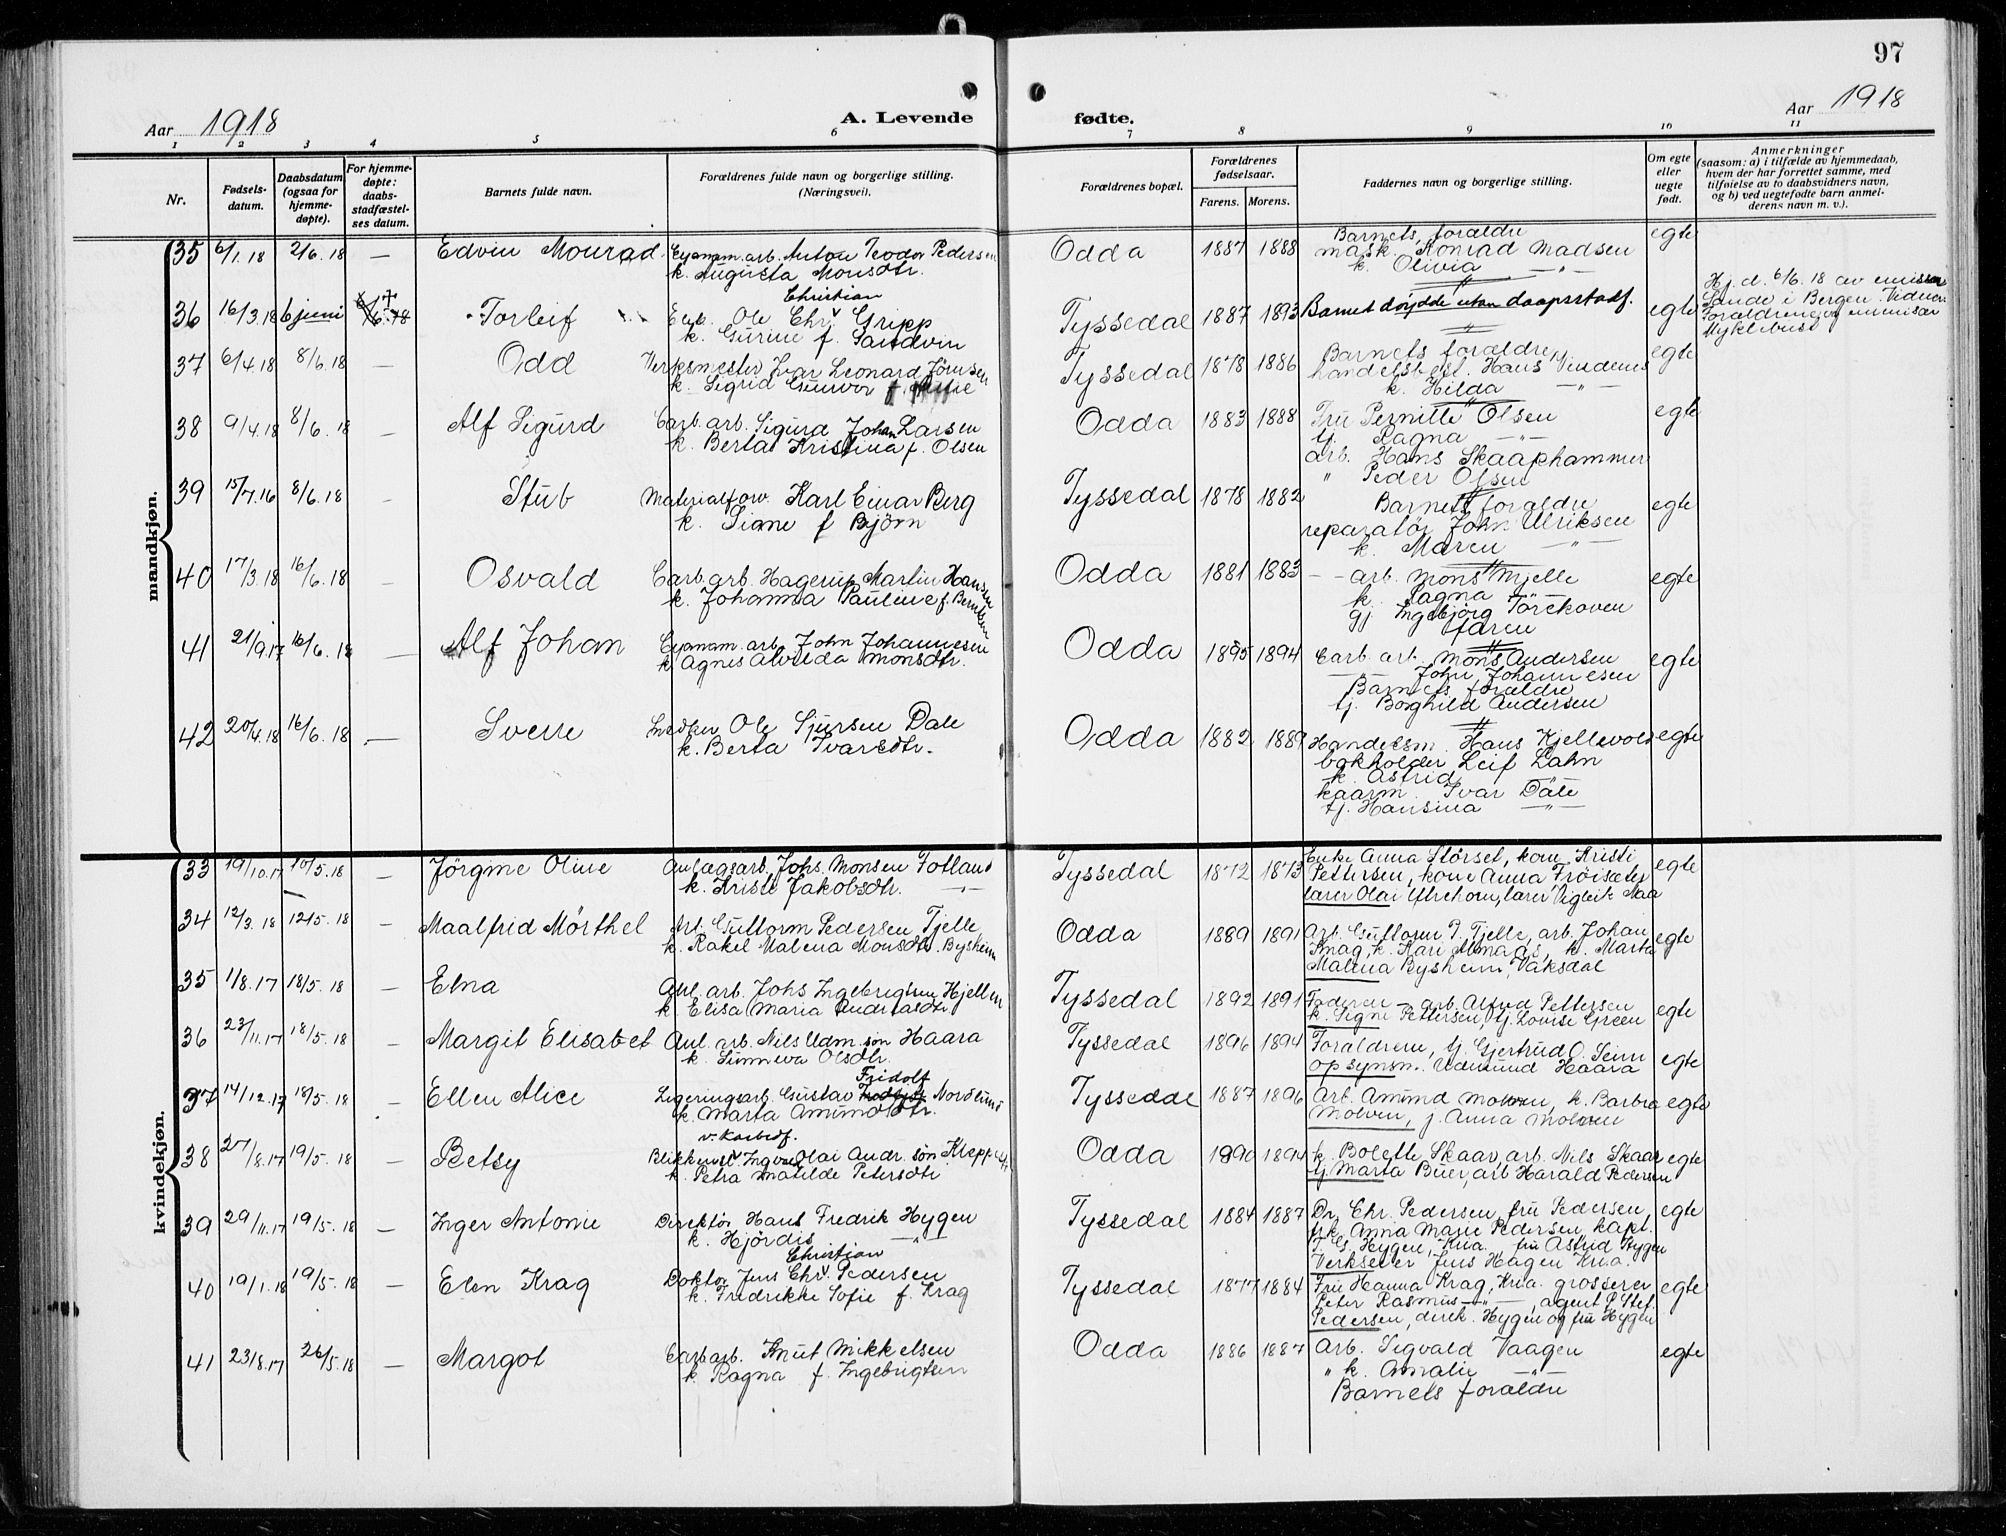 97
Aar 1918
A. Levende fødte.
Aar 1918
1 2 3 4 5 6 7 8 9 10 11
Nr.
Fødsels-
datum.
Daabsdatum
(ogsaa for
hjemme-
døpte).
For hjemme-
døpte:
daabs-
stadfæstel-
ses datum.
Barnets fulde navn.
Forældrenes fulde navn og borgerlige stilling.
(Næringsveil.
Forældrenes bopæl.
Forældrenes
fødselsaar.
Farens. Morens.
Faddernes navn og borgerlige stilling.
Om egte
eller
uegte
født.
Anmerkninger
(saasom: a) i tilfælde av hjemmedaab,
hvem der har forrettet samme, med
tilføielse av to daabsvidners navn,
og b) ved uegtefødte barn anmel-
derens navn m. v.).
mandkjøn.
35 6/1.18 2/6.18 — Edvin Monrad. Cyanam. arb. Anton Teodor Pedersen
k. Augusta Monsdtr.
Odda 1887 1888
Barnets foraldre
mask. Konrad Madsen
k. Olivia —"—
egte
36 16/3.18 6 juni Torleif
Christian
Ole Chr. Gripp
k. Gurine f. Sandvin
Tyssedal 1887 1893
Barnet døydde utan daapsstadf.
egte
Hj. d. 6/6.18 av emissær
Sande i Bergen. Vidner:
Foraldrene og emissær
Myklebust
37 6/4.18 8/6.18 — Odd
Verksmester Ivar Leonard Jörnsen
k. Sigrid Gunvor f.
Tyssedal 1878 1886
Barnets foraldre,
handelsbest. Hans Vindenes
k. Hilda —"—
egte
38 9/4.18 8/6.18 — Alf Sigurd
Carb. arb. Sigurd Johan Larsen
k. Berta Kristina f. Olsen
Odda 1883 1888
Fru Pernille Olsen
tj. Ragna —"—
arb. Hans Skaaphammer
" Peder Olsen
egte
39 15/7.16 8/6.18 - Stub
Materialforv. Karl Einar Berg
k. Signe f Björn
Tyssedal 1878 1882
Barnets foraldre
reparatör John Ulriksen
k. Maren —"—
egte
40 17/3.18 16/6.18 — Osvald
Carb. arb. Hagerup Martin Hansen
k. Johanna Pauline f. Berntsen
Odda 1881 1883
— arb. Mons Mjelle
k. Ragna —"—
gj. Ingebjörg Törekoven
faren
egte
41 21/9.17 16/6.18 — Alf Johan
Cyanam. arb. John Johannesen
k. Agnes Alvilda Monsdtr.
Odda 1895 1894
Carb. arb. Mons Andersen
John Johannesen
Barnets foraldre
tj. Borghild Andersen
egte
42 20/4.18 16/6.18 — Sverre
Ole Sjursen Dale
k. Berta Ivarsdtr.
Odda 1882 1889
Handelsm. Hans Kjellevold
bokholder Leif Lahn
k. Astrid —"—
kaarm. Ivar Dale
tj. Hansina —"—
egte
kvindekjøn.
33 19/10.17 10/5.18 — Jörgine Oline
Anlægsarb. Johs. Monsen Totland
k. Kristi Jakobsdtr. —"—
Tyssedal 1872 1873
Enke Anna Störset, kone Kristi
Pettersen, kone Anna Fröisæter
lærer Olai Ytrehorn, lærer Vigleik Maa
egte
34 12/3.18 12/5.18 — Maalfrid Mörthel
Arb. Guttorm Pedersen Tjelle
k. Rakel Malena Monsdtr. Bysheim
Odda 1889 1891
Arb. Guttorm P. Tjelle, arb. Johan
Knag, k. Kari Almaas, k. Marta
Malena Bysheim, Vaksdal
egte
35 1/8.17 18/5.18 — Elna
Anl. arb. Johs Ingebrigtsen Hjellen
k. Elisa Maria
Tyssedal 1892 1891
Faderen — arb. Alfred Pettersen
k. Signe Pettersen, tj. Louise Green
egte
36 23/11.17 18/5.18 — Margit Elisabet
Anl. arb. Nils Udm.søn Haara
k. Sunneva Olsdtr.
Tyssedal 1896 1894
Foraldrene, tj. Gjertrud O. Seim
opsynsm. Udmund Haara
egte
37 14/12.17 18/5.18 — Ellen Alice
Fridolf
Legeringsarb. Gustav Nordlund
k. Marta Amundsdtr.
Tyssedal 1887 1896
Arb. Amund Molven, k. Barbra
Molven, j. Anna Molven
egte
38 27/8.17 19/5.18 — Betsy
v. Karbidf.
Blikkensl. Ingvald Olai Andr. søn Kleppe
k. Petra Matilde Petersdtr
Odda 1890 1894
k. Bolette Skaar, arb. Nils Skaar
tj. Marta Buer, arb Harald Pedersen
egte
39 29/11.17 19/5.18 — Inger Antonie
Direktør Hans Fredrik Hygen
k. Hjördis —"—
Tyssedal 1884 1887
Dr. Chr. Pedersen, fru Pedersen,
frk. Anna Marie Pedersen, kapt.
Hygen, Kria. fru Astrid Hygen
Verkseier Jens Hagen Kria.
egte
40 19/1.18 19/5.18 — Elen Krag
Christian
Doktor Jens Chr. Pedersen
k. Fredrikke Sofie f. Krag
Tyssedal 1877 1884
Fru Hanna Krag, Kria. grosserer
Peter Rasmus —"—, agent P. Stef.
Pedersen, direk. Hygen og fru Hygen
egte
41 23/8.17 26/5.18 — Margot
Carb arb. Knut Mikkelsen
k. Ragna f. Ingebrigtsen
Odda 1886 1887
Arb. Sigvald Vaagen
" k. Amalie —"—
Barnets foraldre
egte